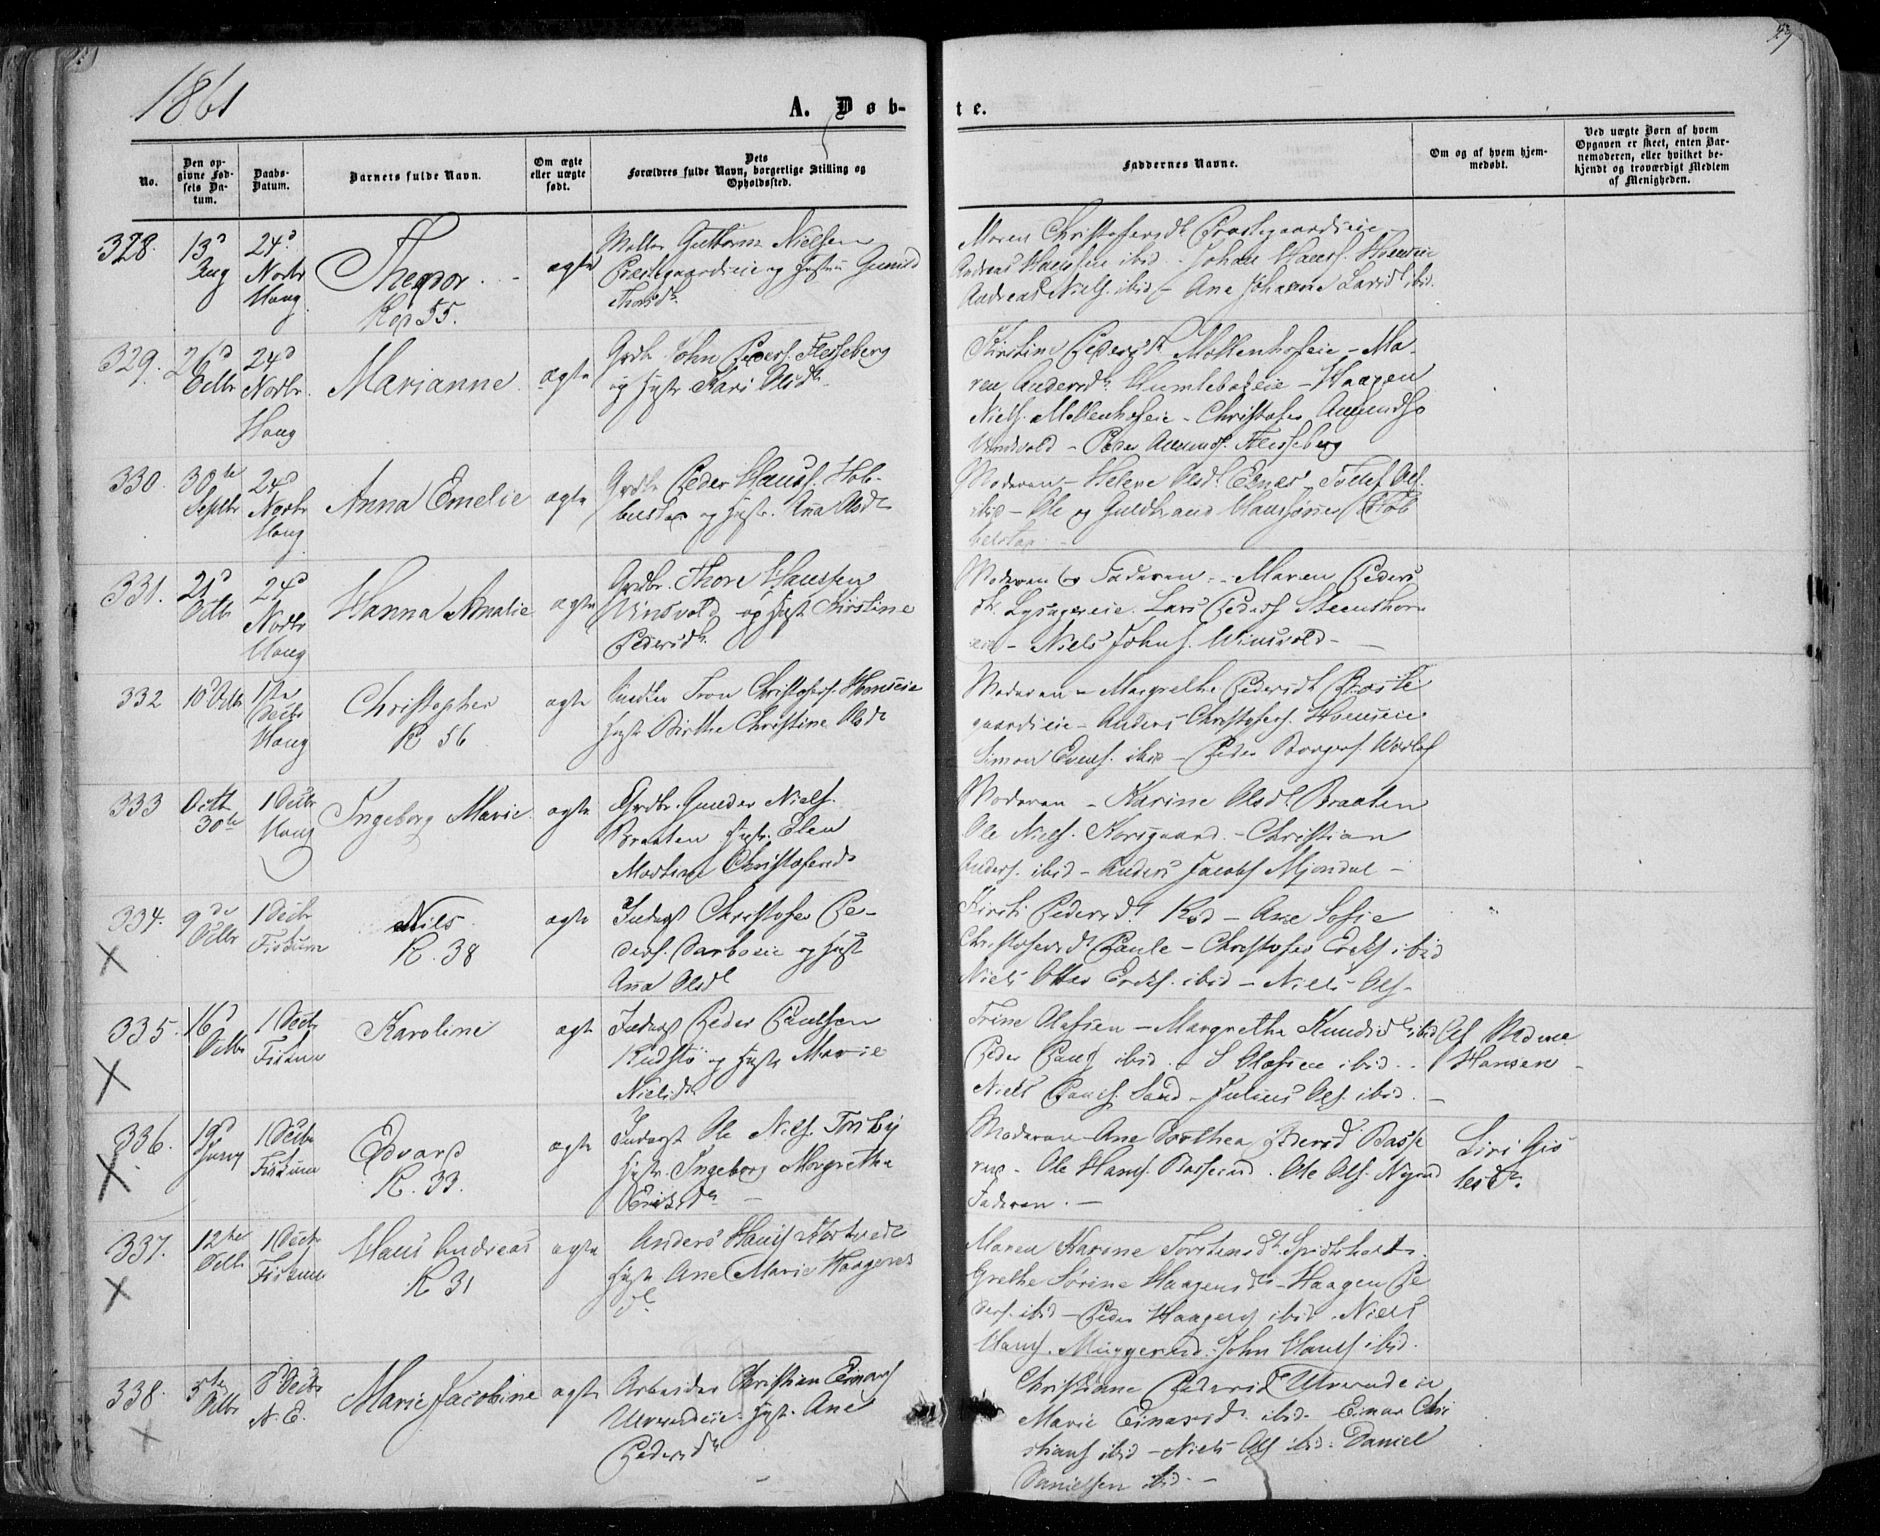 1861
A. Døb-
te.
No.
Den op-
givne Fød-
sels Da-
tum.
Daabs-
Datum.
Barnets fulde Navn.
Om ægte
eller uægte
født.
Dets
Forældres fulde Navn, borgerlige Stilling og
Opholdssted.
Faddernes Navne.
Om og af hvem hjem-
medøbt.
Ved uægte Børn af hvem
Opgaven er skeet, enten Bar-
nemoderen, eller hvilket be-
kjendt og troværdigt Medlem
af Menigheden.
328.
13d
Aug
24d
Novbr
Haug
Thepor
Kop 55.
ægte
Guttorm Nielsen
Præstegaardseie og Hustru Gunild
Thorsdtr
Maren Christophersdtr Præstegaardseie
Andreas Hanssen ibid - Johan Hanss. Homseie
Andreas Niels. ibid - Ane Johanne Larsdtr ibid.
329.
26d
Octbr
24d
Novbr.
Haug
Marianne
ægte
Grdbr John Peders. Flesseberg
og Hustr Kari Olsdtr
Kirstine Pedersdtr Møllenhofeie - Ma-
ren Andersdtr Humlebækeie - Haagen
Niels. Møllenhofeie - Christofer Amundss
Vindvold - Peder Amunds. Flesseberg
330.
30te
Septbr
24d
Novbr
Haug
Anna Emelie
ægte
Grdbr Peder Hanss. Hob-
belstad og Hustr. Ana Olsdtr
Moderen - Helene Olsdtr Eknes - Tollef Ols.
ibid - Ole og Guldbrand Hanssønner Hob
belstad
331.
21d
Octb
24d
Novbr
Haug
Hanna Amalie
ægte
Grdbr. Thore Hanssen
Vindvold og Hustr Kirstine
Pedersdtr
Moderen og Faderen - Maren Peders
dtr Lysagereie. Lars Peders Steenshorn
eie - Niels Johns. Windvold -
332
10d Octb
1ste
Decbr
Haug
Christopher
K 56
ægte
Tron Christofers. Homseie
Hustr Birthe Christine Olsdtr
Moderen - Margrethe Pedersdtr Præste
gaardseie - Anders Christofers. Homseie
Simon Evens. ibid - Peder
333
Octbr
30te
1 Decbr
Haug
Ingeborg Marie
ægte
Grdbr. Gunder Niels.
Braaten Hustr. Elen
Martine Christofersdtr
Moderen - Karine Olsdtr Braaten
Ole Niels. Korsgaard - Christian
Anders. ibid - Anders Jacobs Mjøndal -
334.
9de
Octbr
1 Decbr
Fiskum
Nils
K. 38
ægte
Inderst Christofer Pe-
ders. Darboeie og Hustr
Ana Olsdtr
Kirsti Pedersdtr Rød - Ane Sofie
Christofersdtr Paule - Christofer Ericks. ibid
Niels Otter Ericks. ibid - Niels Ols.
335.
16d
Octbr
1 Decbr
Fiskum
Karoline
ægte
Inderst Peder Paulsen
Rudstø og Hustr Marie
Nielsdtr
Trine Olafsen - Margrethe Knudsdtr ibid
Peder Pauls ibid. S Olafsen ibid.
Niels Pauls. Sand - Julius Ols ibid. -
Af Madme
Hansen -
336.
19d
Juny
1 Decbr
Fiskum
Edvard
K. 33.
ægte
Inderst Ole Niels. Foseby
Hustr Ingeborg Margrethe
Ericksdtr
Moderen - Ane Dorthea Pedersdtr Basse
rud - Ole Hans. Basserud. Ole Ols. Nyrud
Faderen. -
Siri Gis
lesdtr.
337.
12te
Octb
1 Decbr
Fiskum
Hans Andreas
K 31
ægte
Anders Hans Kortvedt
Hustr Ane Marie Haagens
dtr
Maren Karine Torstensdtr Spitsholt
Grethe Sørine Haagensdtr - Haagen Pe
ders. ibid - Peder Haagens ibid. Niels
Hans. Muggerud. John Hanss ibid.
338.
5te
Octbr
8 Decbr
N. E.
Marie Jacobine
ægte
Arbeider Christian Einars
Ulverudeie. Hustr. Ane
Pedersdtr
Christiane Pedersdtr Ulverudeie
Marie Einarsdtr ibid - Einar Chri
stians ibid - Niels Ols ibid. Daniel
Danielsen ibid. -